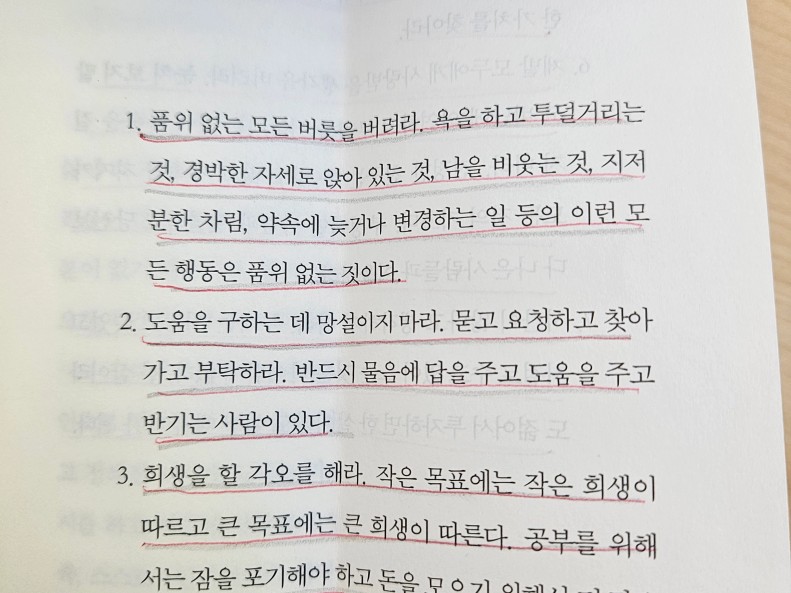 1. 품위 없는 모든 버릇을 버려라. 욕을 하고 투덜거리는
것, 경박한 자세로 앉아 있는 것, 남을 비웃는 것, 지저
분한 차림, 약속에 늦거나 변경하는 일 등의 이런 모
든 행동은 품위 없는 짓이다.
2. 도움을 구하는 데 망설이지 마라. 묻고 요청하고 찾아
가고 부탁하라. 반드시 물음에 답을 주고 도움을 주고
반기는 사람이 있다.
3. 희생을 할 각오를 해라. 작은 목표에는 작은 희생이
따르고 큰 목표에는 큰 희생이 따른다. 공부를 위해
서는 잠을 포기해야 하고 돈을 모으기 위해선